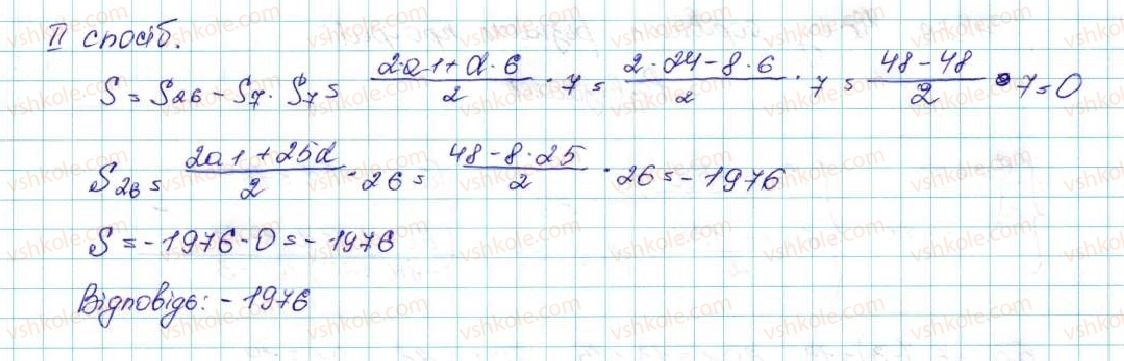 II спосіб.
S = S26 - S7. S7 = (2a1 + d · 6)/2 · 7 = (2 · 24 - 8 · 6)/2 · 7 = (48 - 48)/2 · 7 = 0
S26 = (2a1 + 25d)/2 · 26 = (48 - 8 · 25)/2 · 26 = -1976
S = -1976 - 0 = -1976
Відповідь: -1976